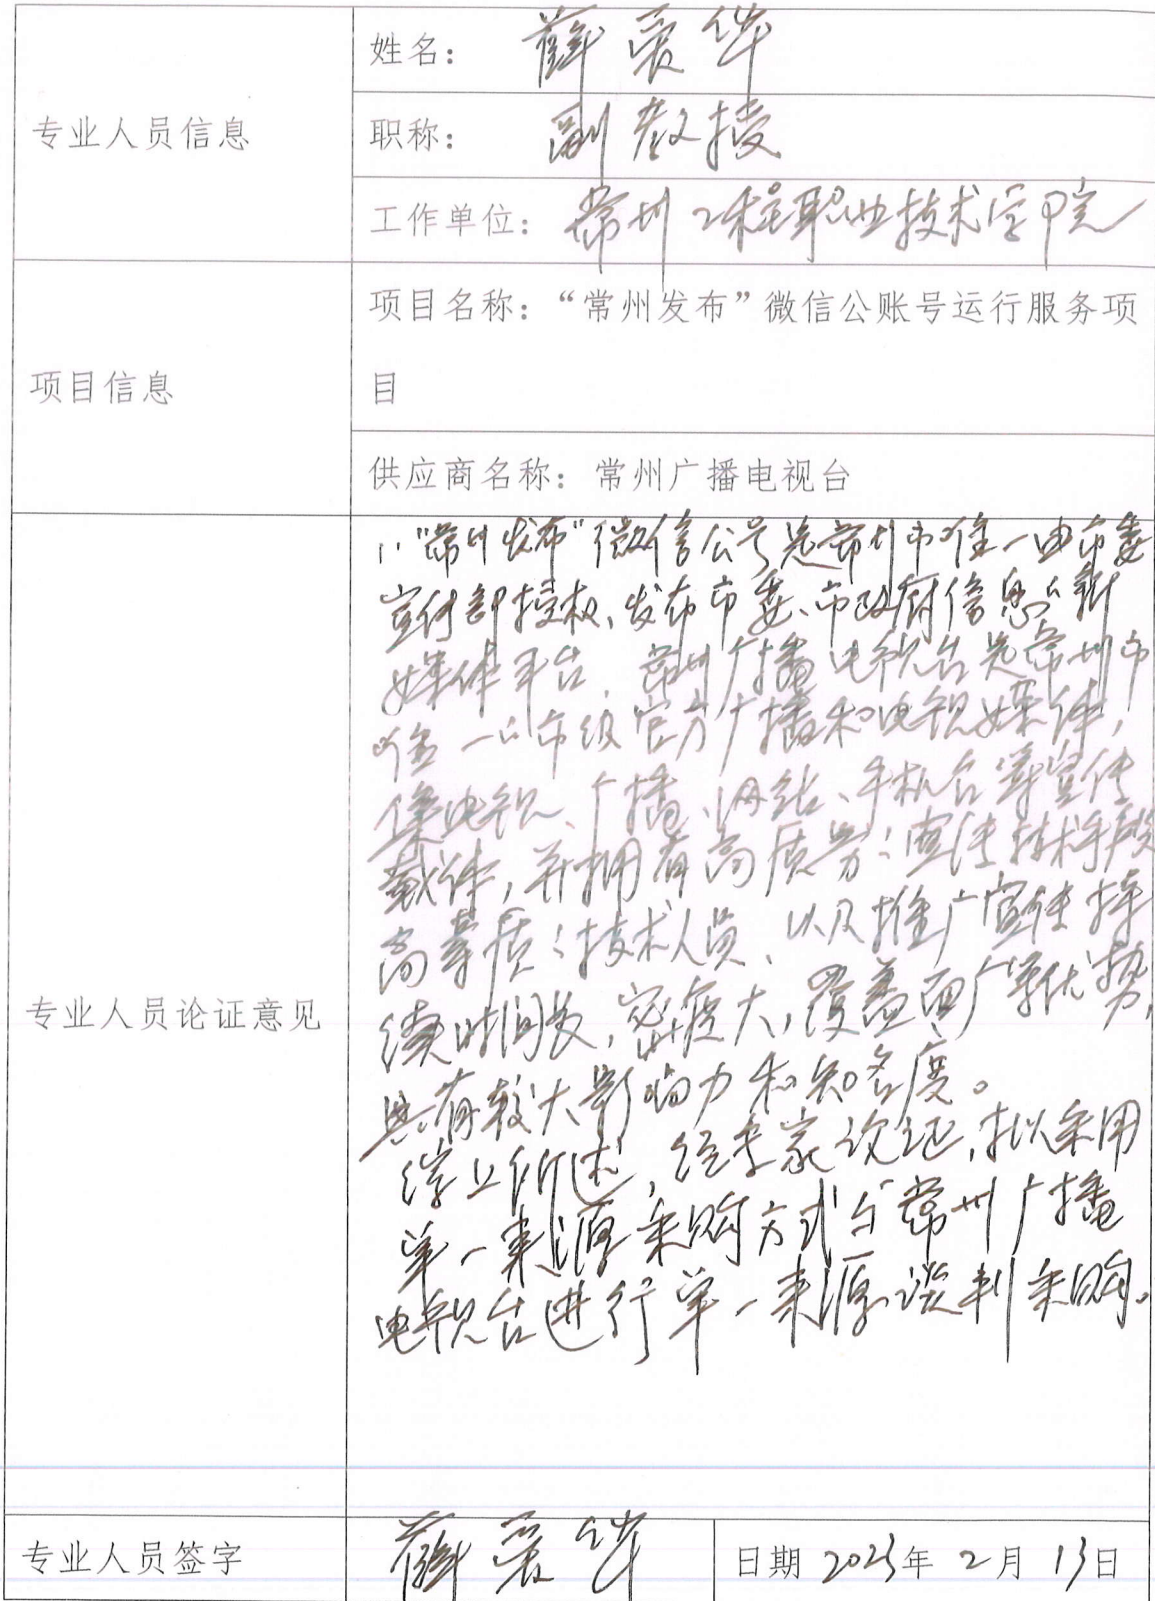 姓名：薛爱华
专业人员信息
职称：副教授
工作单位：常州工程职业技术学院
项目名称：“常州发布”微信公账号运行服务项
项目信息
目
供应商名称：常州广播电视台
1、“常州发布”微信公号是常州市唯一由市委
宣传部授权、发布市委、市政府信息的新
媒体平台，常州广播电视台是常州市
唯一的市级官方广播和电视媒体，
集电视、广播、网站、手机台等宣传
载体，并拥有高质量的宣传技术手段
高素质的技术人员、以及推广宣传持
续时间长，密度大，覆盖面广等优势，
具有较大影响力和知名度。
专业人员论证意见
综上所述，经专家论证，拟采用
单一来源采购方式与常州广播
电视台进行单一来源谈判采购。
专业人员签字 薛爱华 日期 2023年 2月 13日